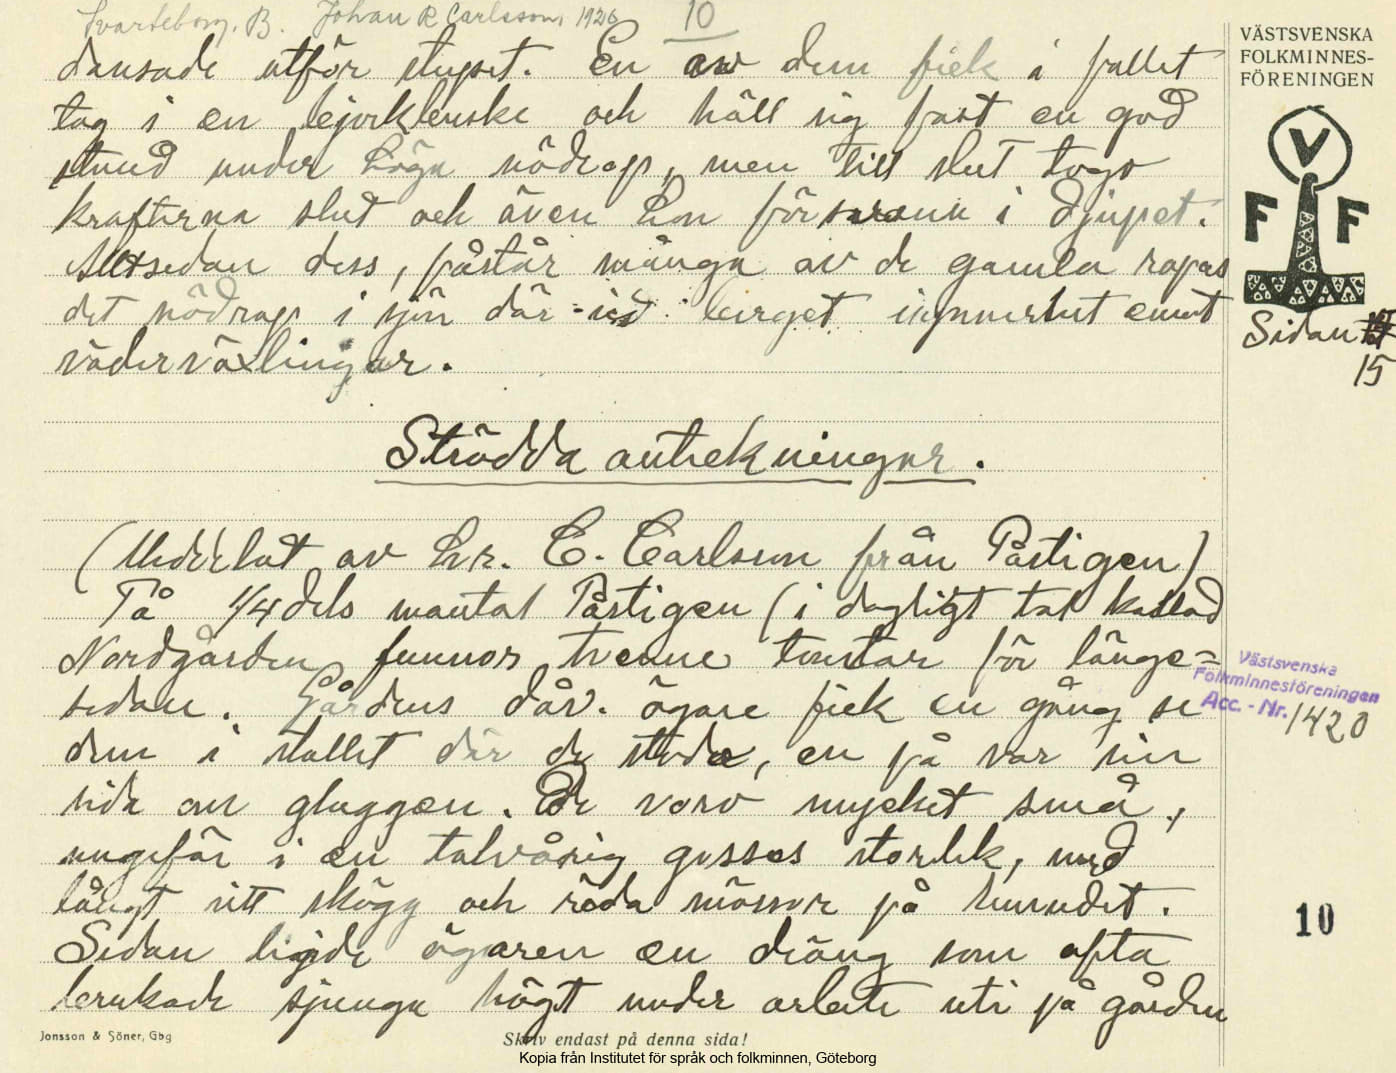 Svarteborg. B. Johan R Carlsson, 1926
10
VÄSTSVENSKA
FOLKMINNES-
FÖRENINGEN
V
F F
Sidan
15
dansade utför stupet. En av dem fick i fallet
tag i en björkbuske och höll sig fast en god
stund under höga nödrop, men till slut togo
krafterna slut och även hon försvann i djupet.
Alltsedan dess, påstår många av de gamla ropas
det nödrop i sjön där vid berget i synnerhet emot
väderväxlingar.
Strödda anteckningar.
(Meddelat av hr. C. Carlsson från Påstigen)
På 1/4 dels mantal Påstigen (i dagligt tal kallad
Nordgården funnos tvenne tomtar för länge=
sedan. Gårdens dåv. ägare fick en gång se
dem i stallet där de stodo, en på var sin
sida om gluggen. De voro mycket små,
ungefär i en tolvårig gosses storlek, med
långt vitt skägg och röda mössor på huvudet.
Sedan lejde ägaren en dräng som ofta
brukade sjunga högt under arbete uti på gården
Västsvenska
Folkminnesföreningen
Acc. - Nr. 1420
10
Jonsson & Söner, Gbg
Skriv endast på denna sida!
Kopia från Institutet för språk och folkminnen, Göteborg